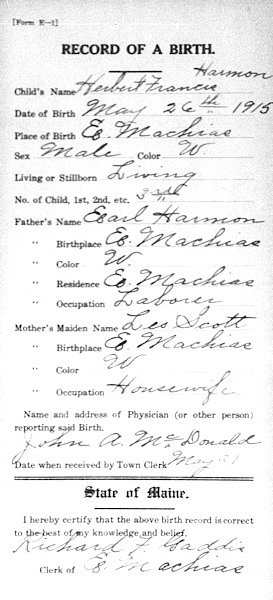 [Form E-1]
RECORD OF A BIRTH.
Harmon
Child's Name Herbert Francis
Date of Birth May 26th 1915
Place of Birth E. Machias
Sex Male Color W.
Living or Stillborn Living
No. of Child, 1st, 2nd, etc. 3rd
Father's Name Earl Harmon
" Birthplace E. Machias
" Color W.
" Residence E. Machias
" Occupation Laborer
Mother's Maiden Name Les Scott
" Birthplace E. Machias
" Color W
" Occupation Housewife
Name and address of Physician (or other person)
reporting said Birth.
John A. McDonald
Date when received by Town Clerk May 31
State of Maine.
I hereby certify that the above birth record is correct
to the best of my knowledge and belief.
Richard F. Gaddis
Clerk of E. Machias